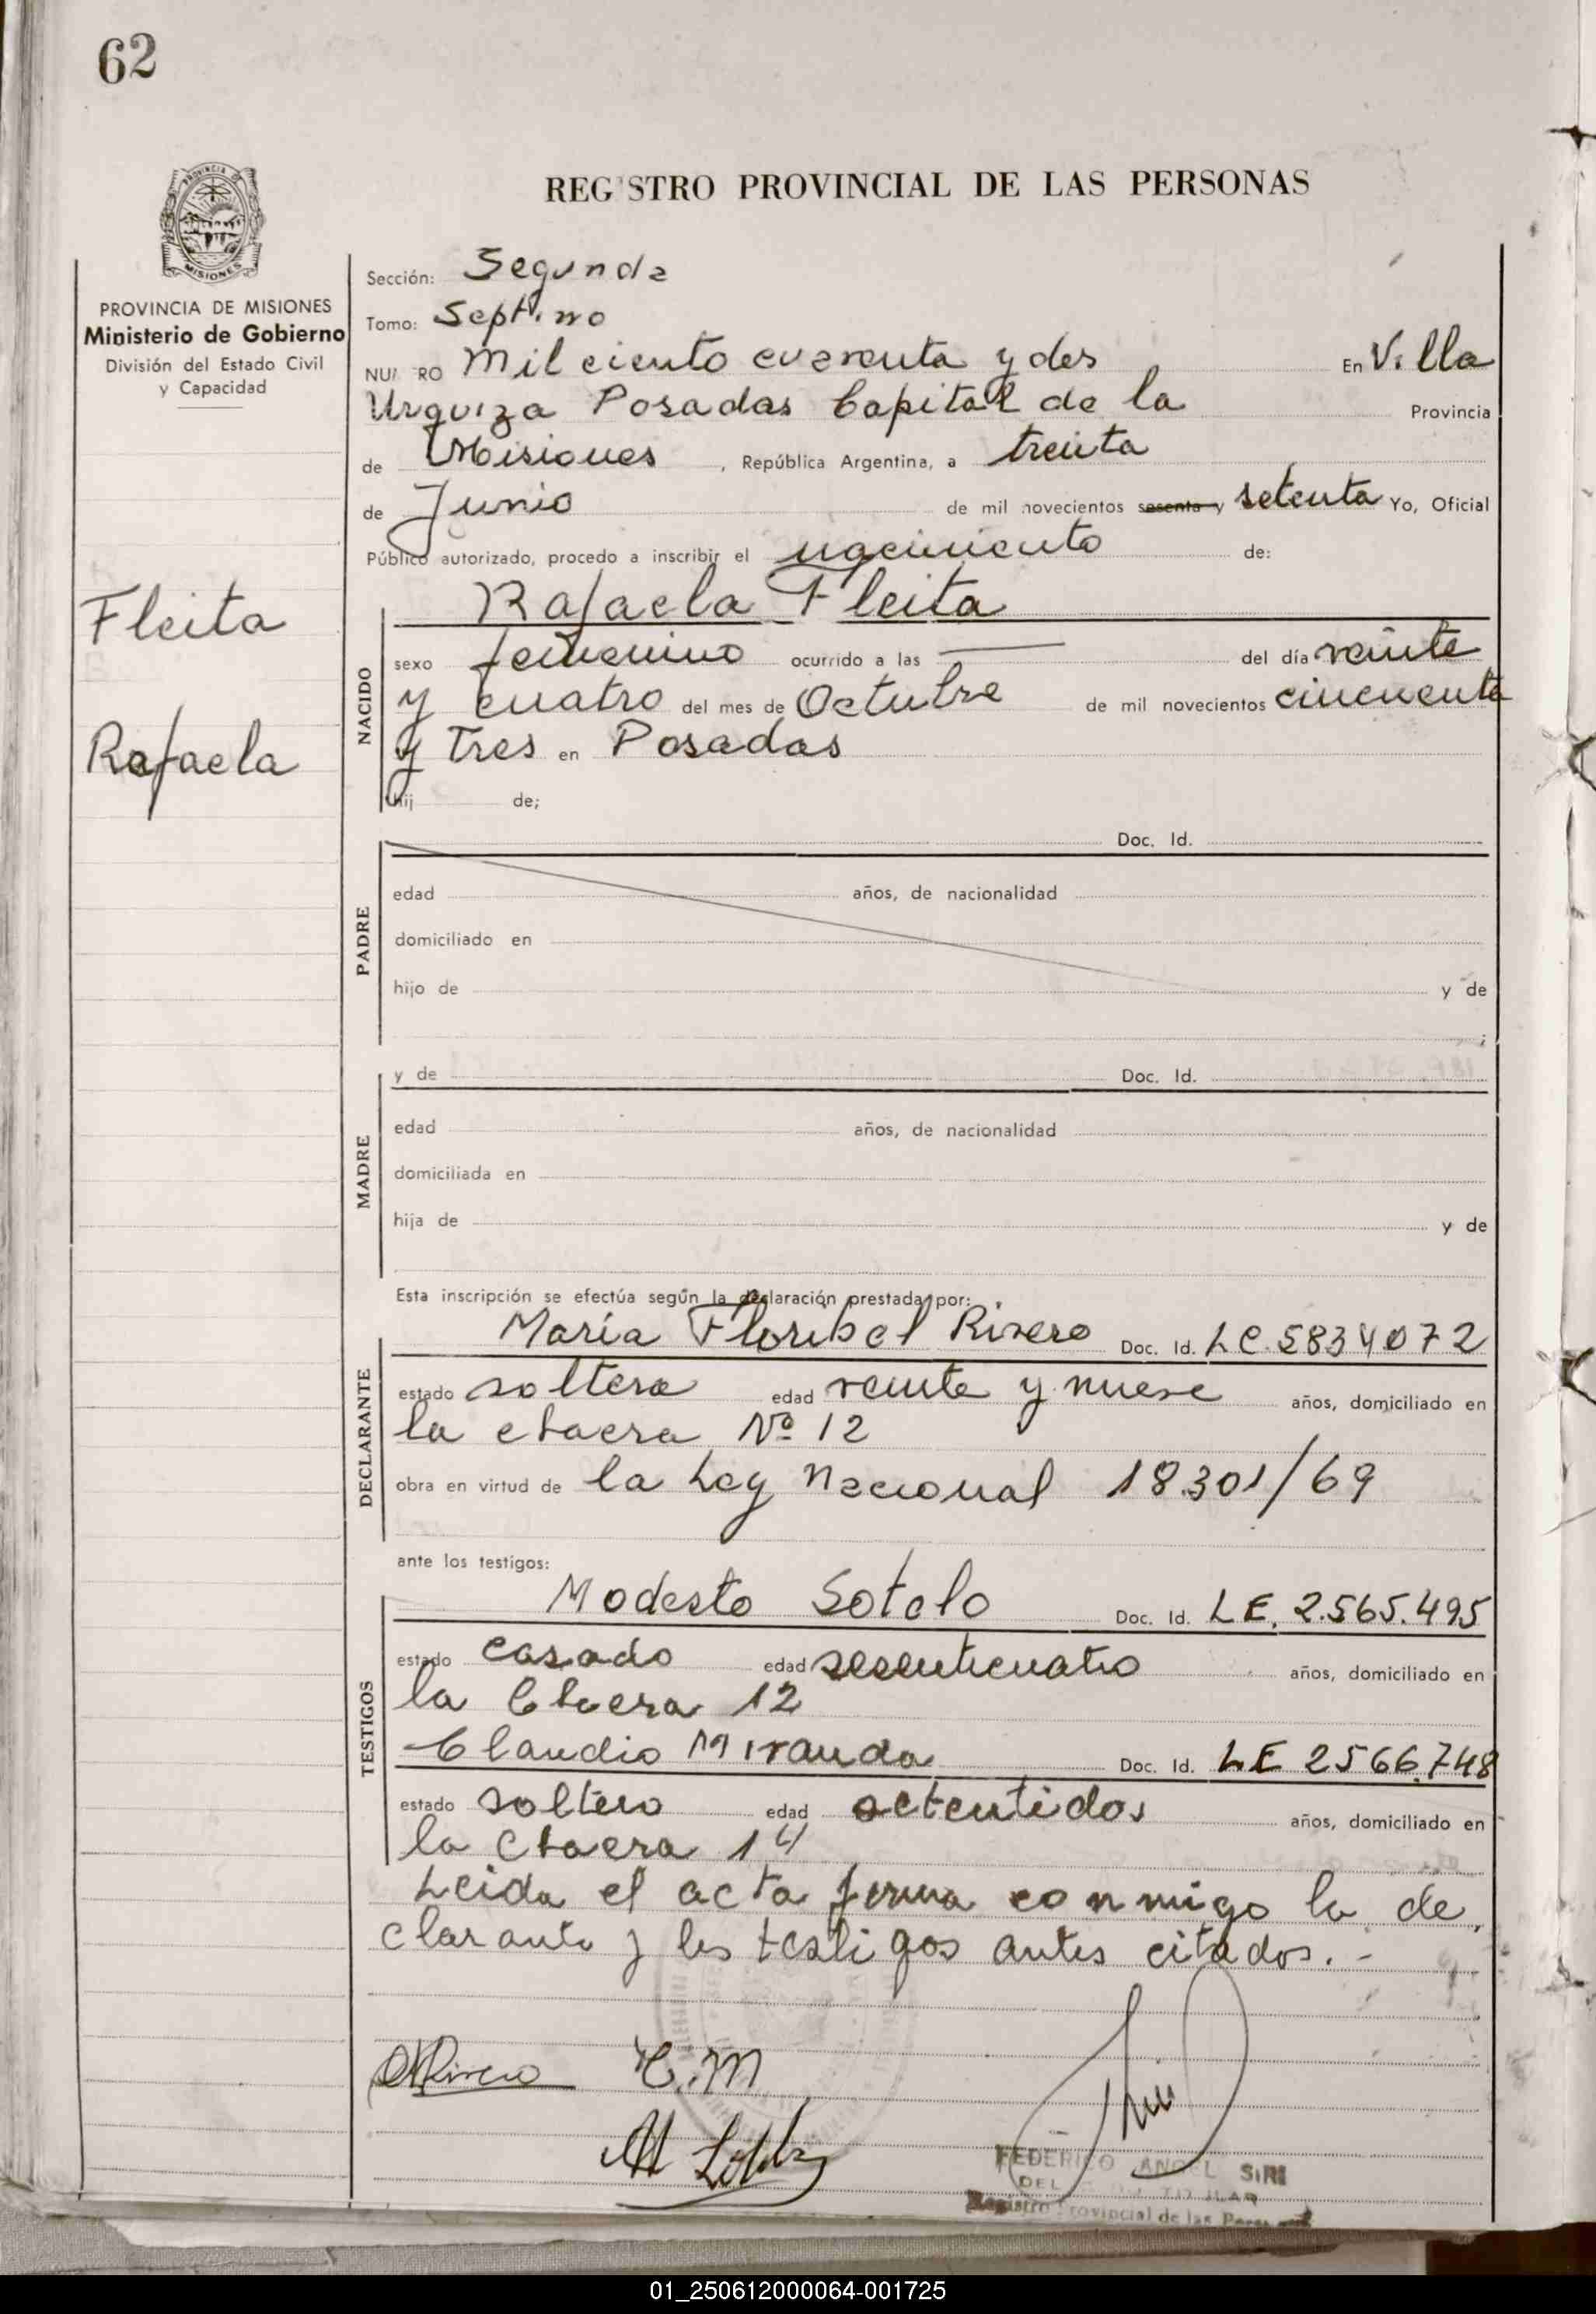 62
PROVINCIA DE MISIONES
PROVINCIA DE MISIONES
Ministerio de Gobierno
División del Estado Civil
y Capacidad
Fleita
Rafaela
REG STRO PROVINCIAL DE LAS PERSONAS
Sección: Segunda
Tomo: Septimo
NU RO Mil ciento cuarenta y dos En Villa
Urquiza Posadas Capital de la Provincia
de Misiones , República Argentina, a treinta
de Junio de mil novecientos sesenta y setenta Yo, Oficial
Público autorizado, procedo a inscribir el nacimiento de:
Rafaela Fleita
NACIDO
sexo femenino ocurrido a las — del día veinte
y cuatro del mes de Octubre de mil novecientos cincuenta
y Tres en Posadas
hij de;
PADRE
Doc. Id.
edad años, de nacionalidad
domiciliado en
hijo de y de
;
MADRE
y de Doc. Id.
edad años, de nacionalidad
domiciliada en
hija de y de
Esta inscripción se efectúa según la declaración prestada por:
DECLARANTE
María Floribel Rivero Doc. Id. LC. 5834072
estado soltera edad veinte y nueve años, domiciliado en
la chacra Nº 12
obra en virtud de la Ley Nacional 18.301/69
ante los testigos:
TESTIGOS
Modesto Sotelo Doc. Id. LE. 2.565.495
estado casado edad sesenticuatro años, domiciliado en
la Chacra 12
Claudio Miranda Doc. Id. LE 2566.748
estado soltero edad setentidos años, domiciliado en
la Chacra 14
Leida el acta firma conmigo la de
clarante y los testigos antes citados. -
MRivero C.M
FEDERICO ANGEL SIRI
DEL
Registro Provincial de las Personas
01_250612000064-001725